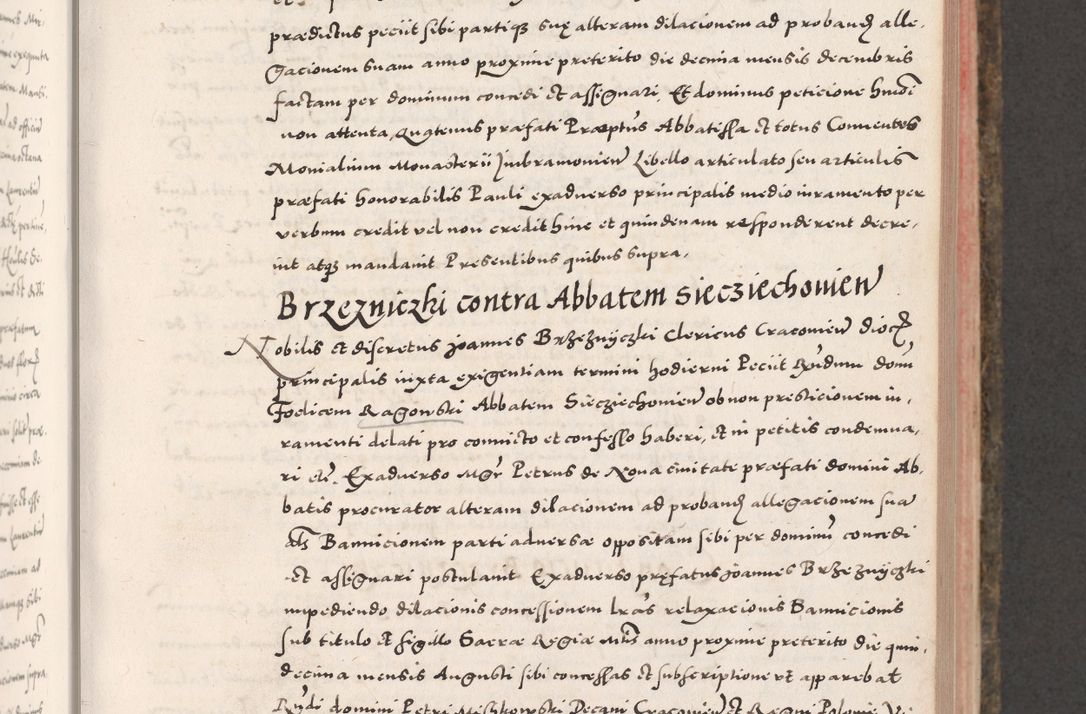 prædictus peciit sibi partiqꝫ suę alteram dilacionem ad probanđ alle,
gacionem suam anno proxime preterito die decima mensis decembris
factam per dominum concedi et assignari. Et dominus peticione hmōi
non attenta, Quatenus præfati Præptus Abbatissa et totus Conuentus
Monialium Monasterii Imbramouień Libello articulato seu articulis
præfati honorabilis Pauli exaduerso principalis medio iuramento per
verbum credit vel non credit hinc et quindenam responderent decre,
uit atqꝫ mandauit Presentibus quibus supra,
Brzezniczki contra Abbatem Siecziechouień
Nobilis et discretus Joannes Brzeznyczki Clericus Cracouień dioc
principalis iuxta exigentiam termini hodierni Peciit Rndum domı
Foelicem Ragowski Abbatem Siecziechouień ob non presticionem iu,
ramenti delati pro conuicto et confesso haberi, et in petitis condemna,
ri etc. Exaduerso Mgr Petrus de Noua ciuitate præfati domini Ab,
batis procurator alteram dilacionem ad probanđ allegacionem sua
als Bannicionem parti aduersæ oppositam sibi per dominū concedi
et assignari postulauit Exaduerso pręfatus Joannes Brzeznyczki
impediendo dilacionis concessionem lras relaxacionis Bannicionis
sub titulo et sigillo Sacræ Regiæ Mtis anno proxime preterito die quin,
decima mensis Augusti sibi concessas et subscriptione vt apparebat
Rndi domini Petri Mischkowski Decani Cracouień et Regni Polonie Vi